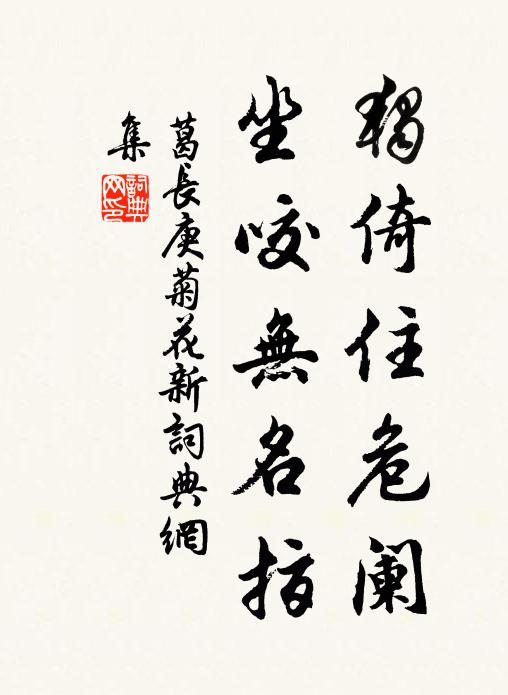 獨倚住危阑
坐咬無名指
葛長庚菊花新詞典網
集
詞典
网印